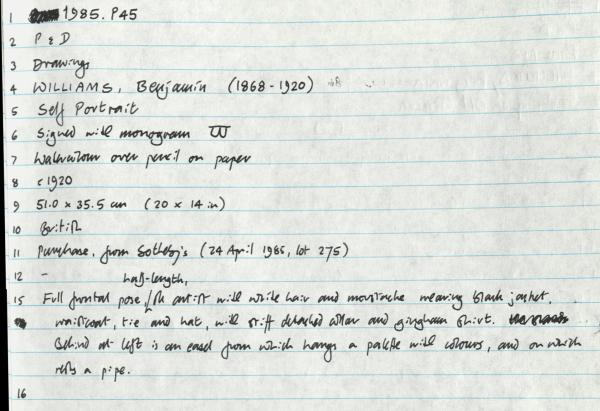 1 1985.P45
2 P & D
3 Drawings
4 WILLIAMS, Benjamin (1868-1920)
5 Self Portrait
6 Signed with monogram
7 Watercolour over pencil on paper
8 c1920
9 51.0 x 35.5 cm (20 x 14 in)
10 British
11 Purchase, from Sotheby's (24 April 1985, lot 275)
12 -
half-length,
15 Full frontal pose, the artist with white hair and moustache wearing black jacket,
waistcoat, tie and hat, with stiff detached collar and gingham shirt.
Behind at left is an easel from which hangs a palette with colours, and on which
rests a pipe.
16